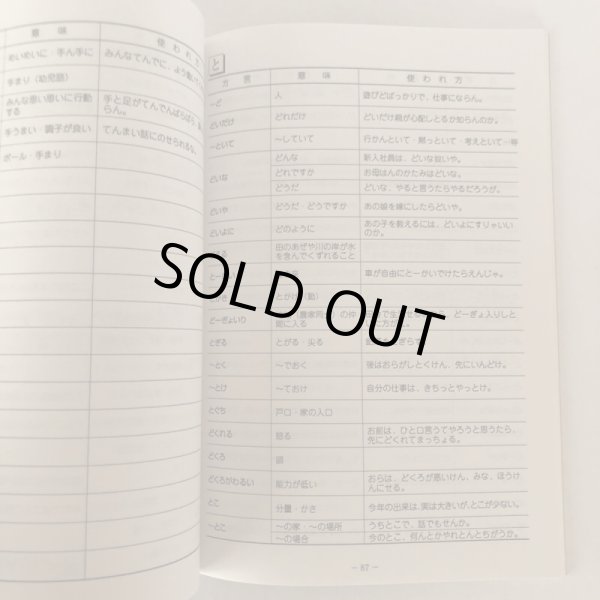 意味 使われ方
めいめいに・手ん手に みんなてんでに、よう
手まり（幼児語）
みんな思い思いに行動 手と足がてんでんばらばら、
する らん。
手うまい・調子が良い てんまい話にのせられる。
ボール・手まり
と
方言 意味 使われ方
～ど 人 遊びどばっかりで、仕事にならん。
どいだけ どれだけ どいだけ親が心配しとるか知らんのか。
～といて ～していて 行かんといて・黙っといて・考えといて…等
どんな 新入社員は、どいな奴いや。
どいな どれですか お母はんのかたみはどいな。
どうだ どいな、やると言うたらやるだろうが。
どいや どうだ・どうですか あの娘を嫁にしたらどいや。
どいよに どのように あの子を教えるには、どいよにすりゃいい
のか。
田のあぜや川の岸が水
を含んでくずれること
車が自由にとーかいでけたらえんじゃ。
どーぎょいり
とぎる とがる・尖る
～とく ～でおく 後はおらがしとくけん、先にいんどけ。
～とけ ～ておけ 自分の仕事は、きちっとやっとけ。
とぐち 戸口・家の入口
どくれる 怒る お前は、ひと口言うてやろうと思うたら、
先にどくれてまっちょる。
どくろ 頭
どくろがわるい 能力が低い おらは、どくろが悪いけん、みな、ほうけ
んにせる。
とこ 分量・かさ 今年の出来は、実は大きいが、とこが少ない。
～とこ ～の家・～の場所 うちとこで、話でもせんか。
～の場合 今のとこ、何んとかやれとんとちがうか。
－87－
SOLD OUT